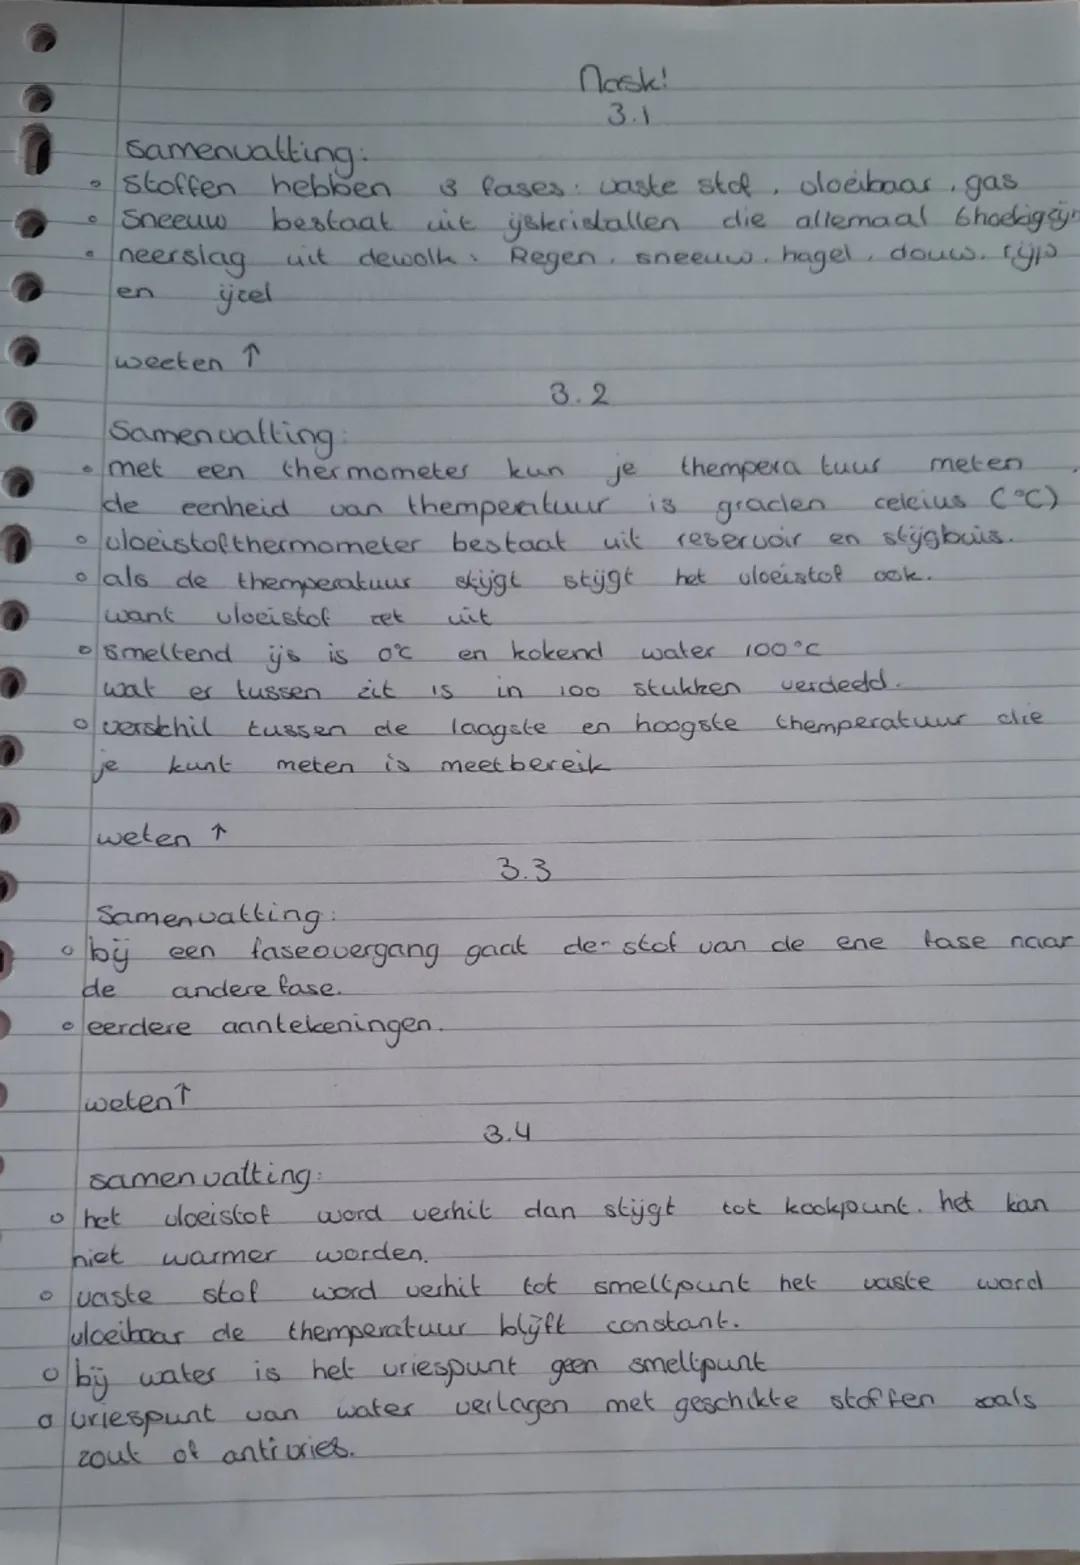 Nask!
3.1
samenvatting:
stoffen hebben 3 fases: vaste stof, vloeibaar, gas
Sneeuw bestaat uit ijskristallen die allemaal 6hoekig zijn
neerslag uit dewolk: Regen, sneeuw, hagel, douw, rijp
en ijzel
weeten ↑
3.2
Samenvatting:
met een thermometer kun je thempera tuur meten
de eenheid van themperatuur is graden celcius (°C)
vloeistofthermometer bestaat uit reservoir en stijgbuis.
als de themperatuur stijgt stijgt het vloeistof ook.
want vloeistof zet uit
smeltend ijs is 0°C en kokend water 100°C
wat er tussen zit is in 100 stukken verdeeld.
verschil tussen de laagste en hoogste themperatuur die
je kunt meten is meetbereik
weten ↑
3.3
Samenvatting:
bij een faseovergang gaat de stof van de ene fase naar
de andere fase.
eerdere aantekeningen.
weten ↑
3.4
samenvatting:
het vloeistof word verhit dan stijgt tot kookpunt. het kan
niet warmer worden.
vaste stof word verhit tot smeltpunt het vaste word
vloeibaar de themperatuur blijft constant.
bij water is het vriespunt geen smeltpunt
vriespunt van water verlagen met geschikte stoffen zoals
zout of antivries.